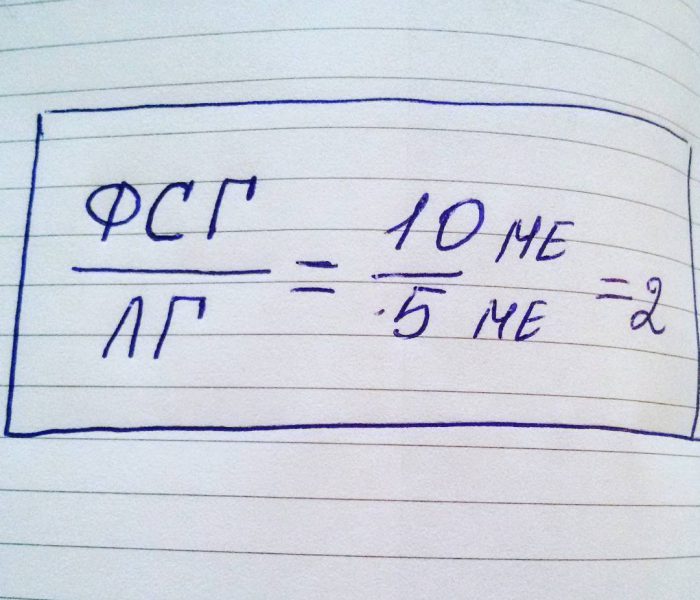 ФСГ
ЛГ
=
10 МЕ
5 МЕ
=2